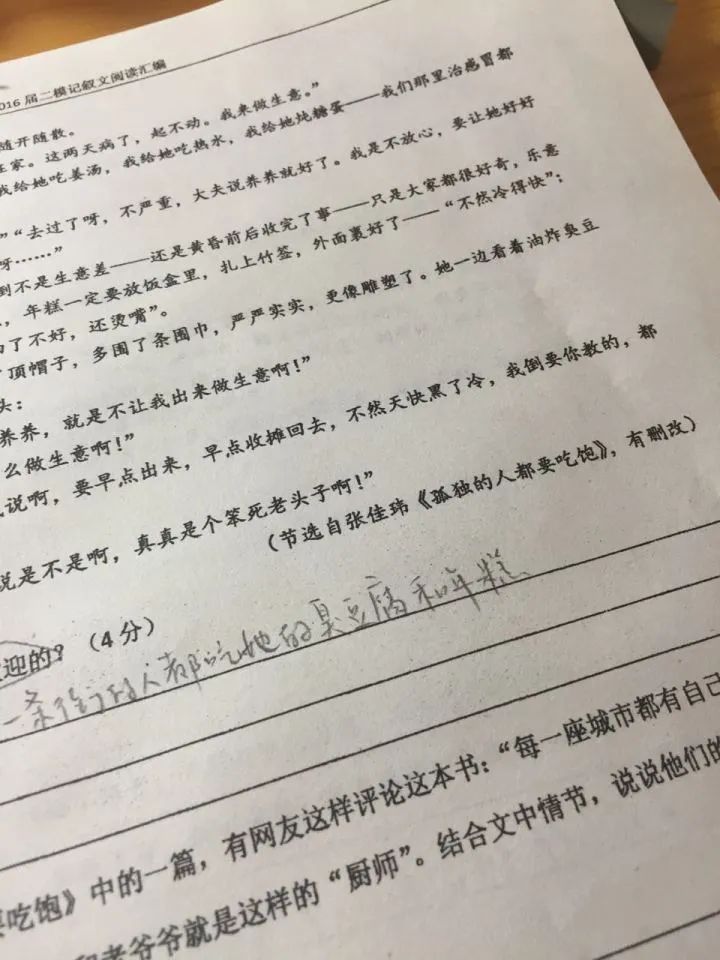 016 届二模记叙文阅读汇编
随开随散。
在家。这两天病了，起不动。我来做生意。”
我给她吃姜汤，我给她吃热水，我给她炖糖蛋——我们那里治感冒都
”“去过了呀，不严重，大夫说养养就好了。我是不放心，要让她好好
呀……”
到不是生意差——还是黄昏前后收完了事——只是大家都很好奇，乐意
，年糕一定要放饭盒里，扎上竹签，外面裹好了——“不然冷得快”；
了不好，还烫嘴”。
顶帽子，多围了条围巾，严严实实，更像雕塑了。她一边看着油炸臭豆
头：
养养，就是不让我出来做生意啊！”
么做生意啊！”
说啊，要早点出来，早点收摊回去，不然天快黑了冷，我倒要你教的，都
说是不是啊，真真是个笨死老头子啊！”
（节选自张佳玮《孤独的人都要吃饱》，有删改）
迎的？（4 分）
一条街的人都吃她的臭豆腐和年糕
吃饱》中的一篇，有网友这样评论这本书：“每一座城市都有自己
和老爷爷就是这样的“厨师”。结合文中情节，说说他们的